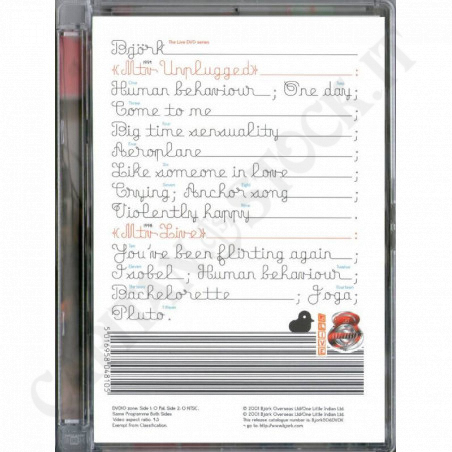 Björk The Live DVD series
«Mtv 1994 Unplugged»
One Two
Human behaviour ; One day;
Three
Come to me ;
Four
Big time sensuality ;
Five
Aeroplane ;
Six
Like someone in love ;
Seven Eight
Crying; Anchor song ;
Nine
Violently happy .
«Mtv 1998 Live» :
Ten
You've been flirting again ;
Eleven Twelve
Isobel ; Human behaviour ;
Thirteen Fourteen
Bachelorette ; Joga;
Fifteen
Pluto .
5016958048105
DVD10 zone. Side 1: O Pal. Side 2: O NTSC.
Same Programme Both Sides
Video aspect ratio: 4:3
Exempt from Classification.
℗ 2001 Bjork Overseas Ltd/One Little Indian Ltd.
© 2001 Bjork Overseas Ltd/One Little Indian Ltd.
This release catalogue number is
go to: http://www.bjork.com